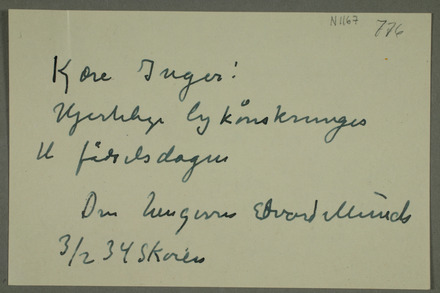 N1167 776
Kjære Inger!
Hjertelige lykønskninger
til fødselsdagen
Din hengivne Edvard Munch
3/2 34 Skøien